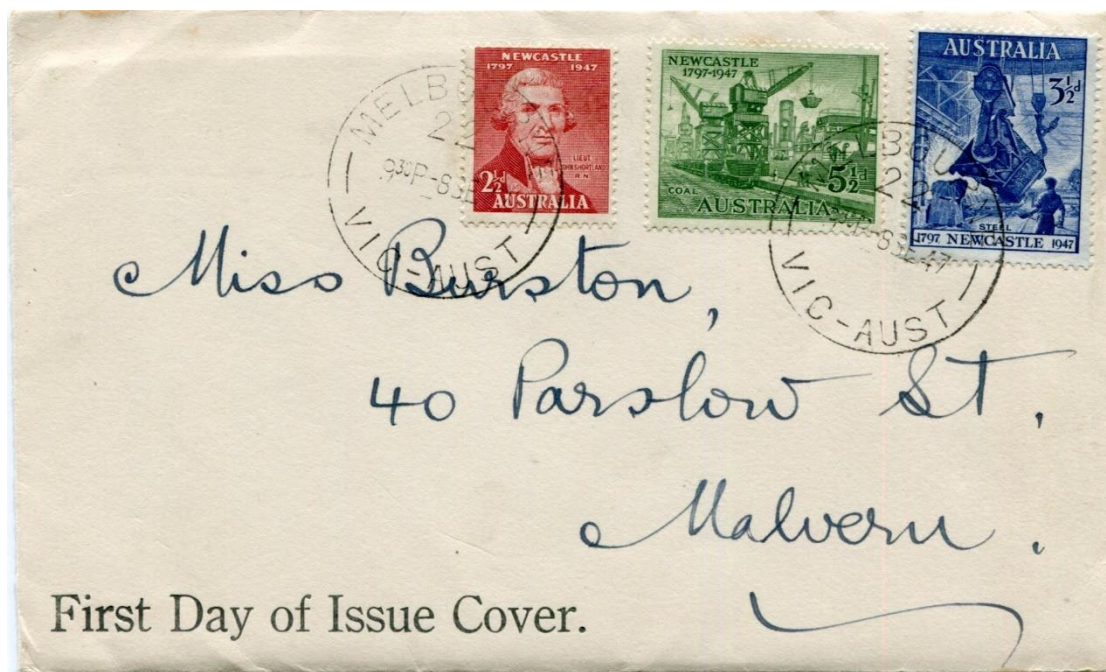 NEWCASTLE
1797 1947
LIEUT.
JOHN SHORTLAND
R.N.
2½d
AUSTRALIA
NEWCASTLE
1797-1947
COAL
5½d
AUSTRALIA
AUSTRALIA
3½d
STEEL
1797 NEWCASTLE 1947
MELBOU
22
930P-8SE
VIC-AUST
BOU
22
-8SE47
VIC-AUST
Miss Burston,
40 Parslow St,
Malvern.
First Day of Issue Cover.